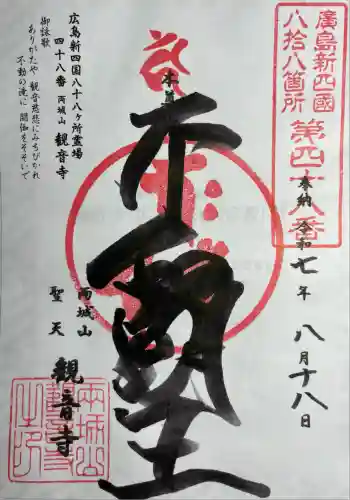 廣島新四國
八拾八箇所
第四十八番
奉納 令和七年 八月十八日
本尊
不動堂
広島新四国八十八ヶ所霊場
四十八番 両城山 観音寺
御詠歌
ありがたや 観音慈悲にみちびかれ
不動の滝に 閼伽をそそいで
両城山
聖天
観音寺